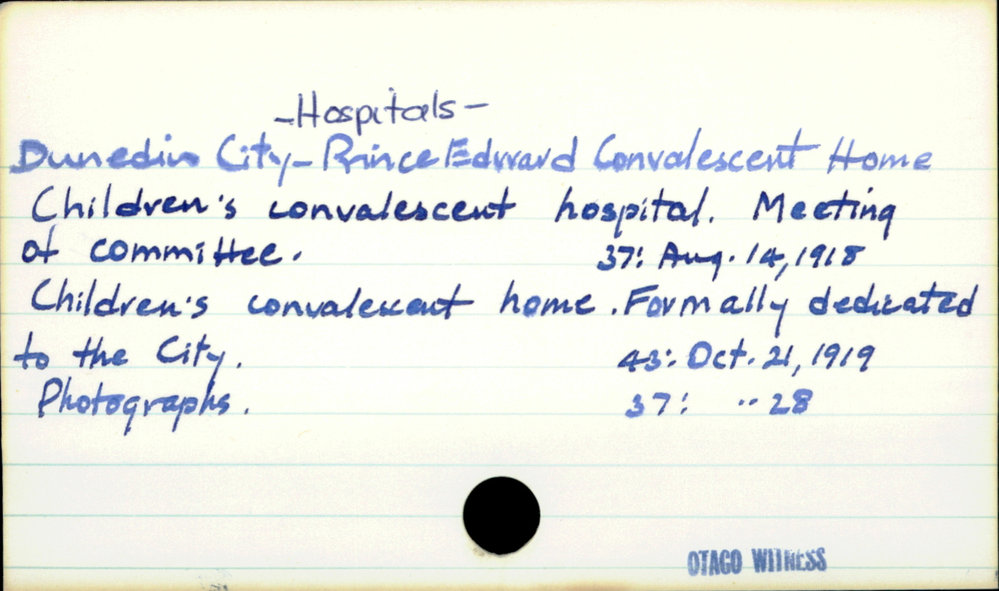 -Hospitals-
Dunedin City - Prince Edward Convalescent Home
Children's convalescent hospital. Meeting
of committee. 37: Aug. 14, 1918
Children's convalescent home. Formally dedicated
to the City. 43: Oct. 21, 1919
Photographs. 37: " 28
OTAGO WITNESS